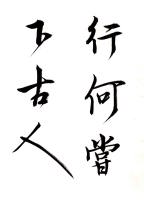 行何嘗
下古人